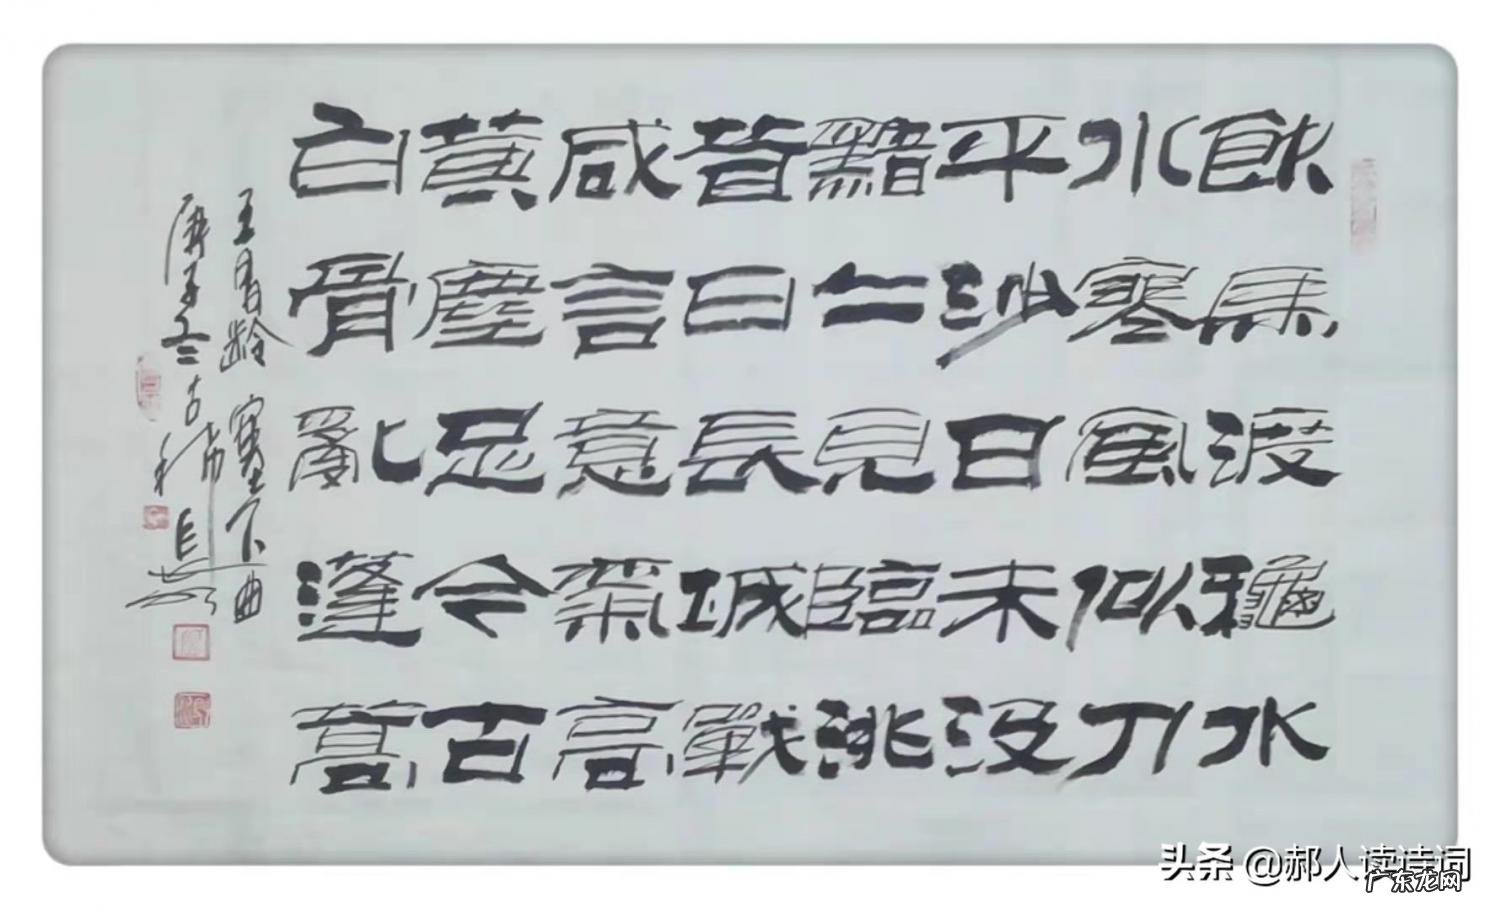 飲馬渡龝水
水寒風似刀
平沙日未没
黯々見臨洮
昔日長城戰
咸言意氣高
黃塵足今古
白骨亂蓬蒿
王昌齡 塞下曲
庚子冬古稀
头条 @郝人读诗词
广东龙网